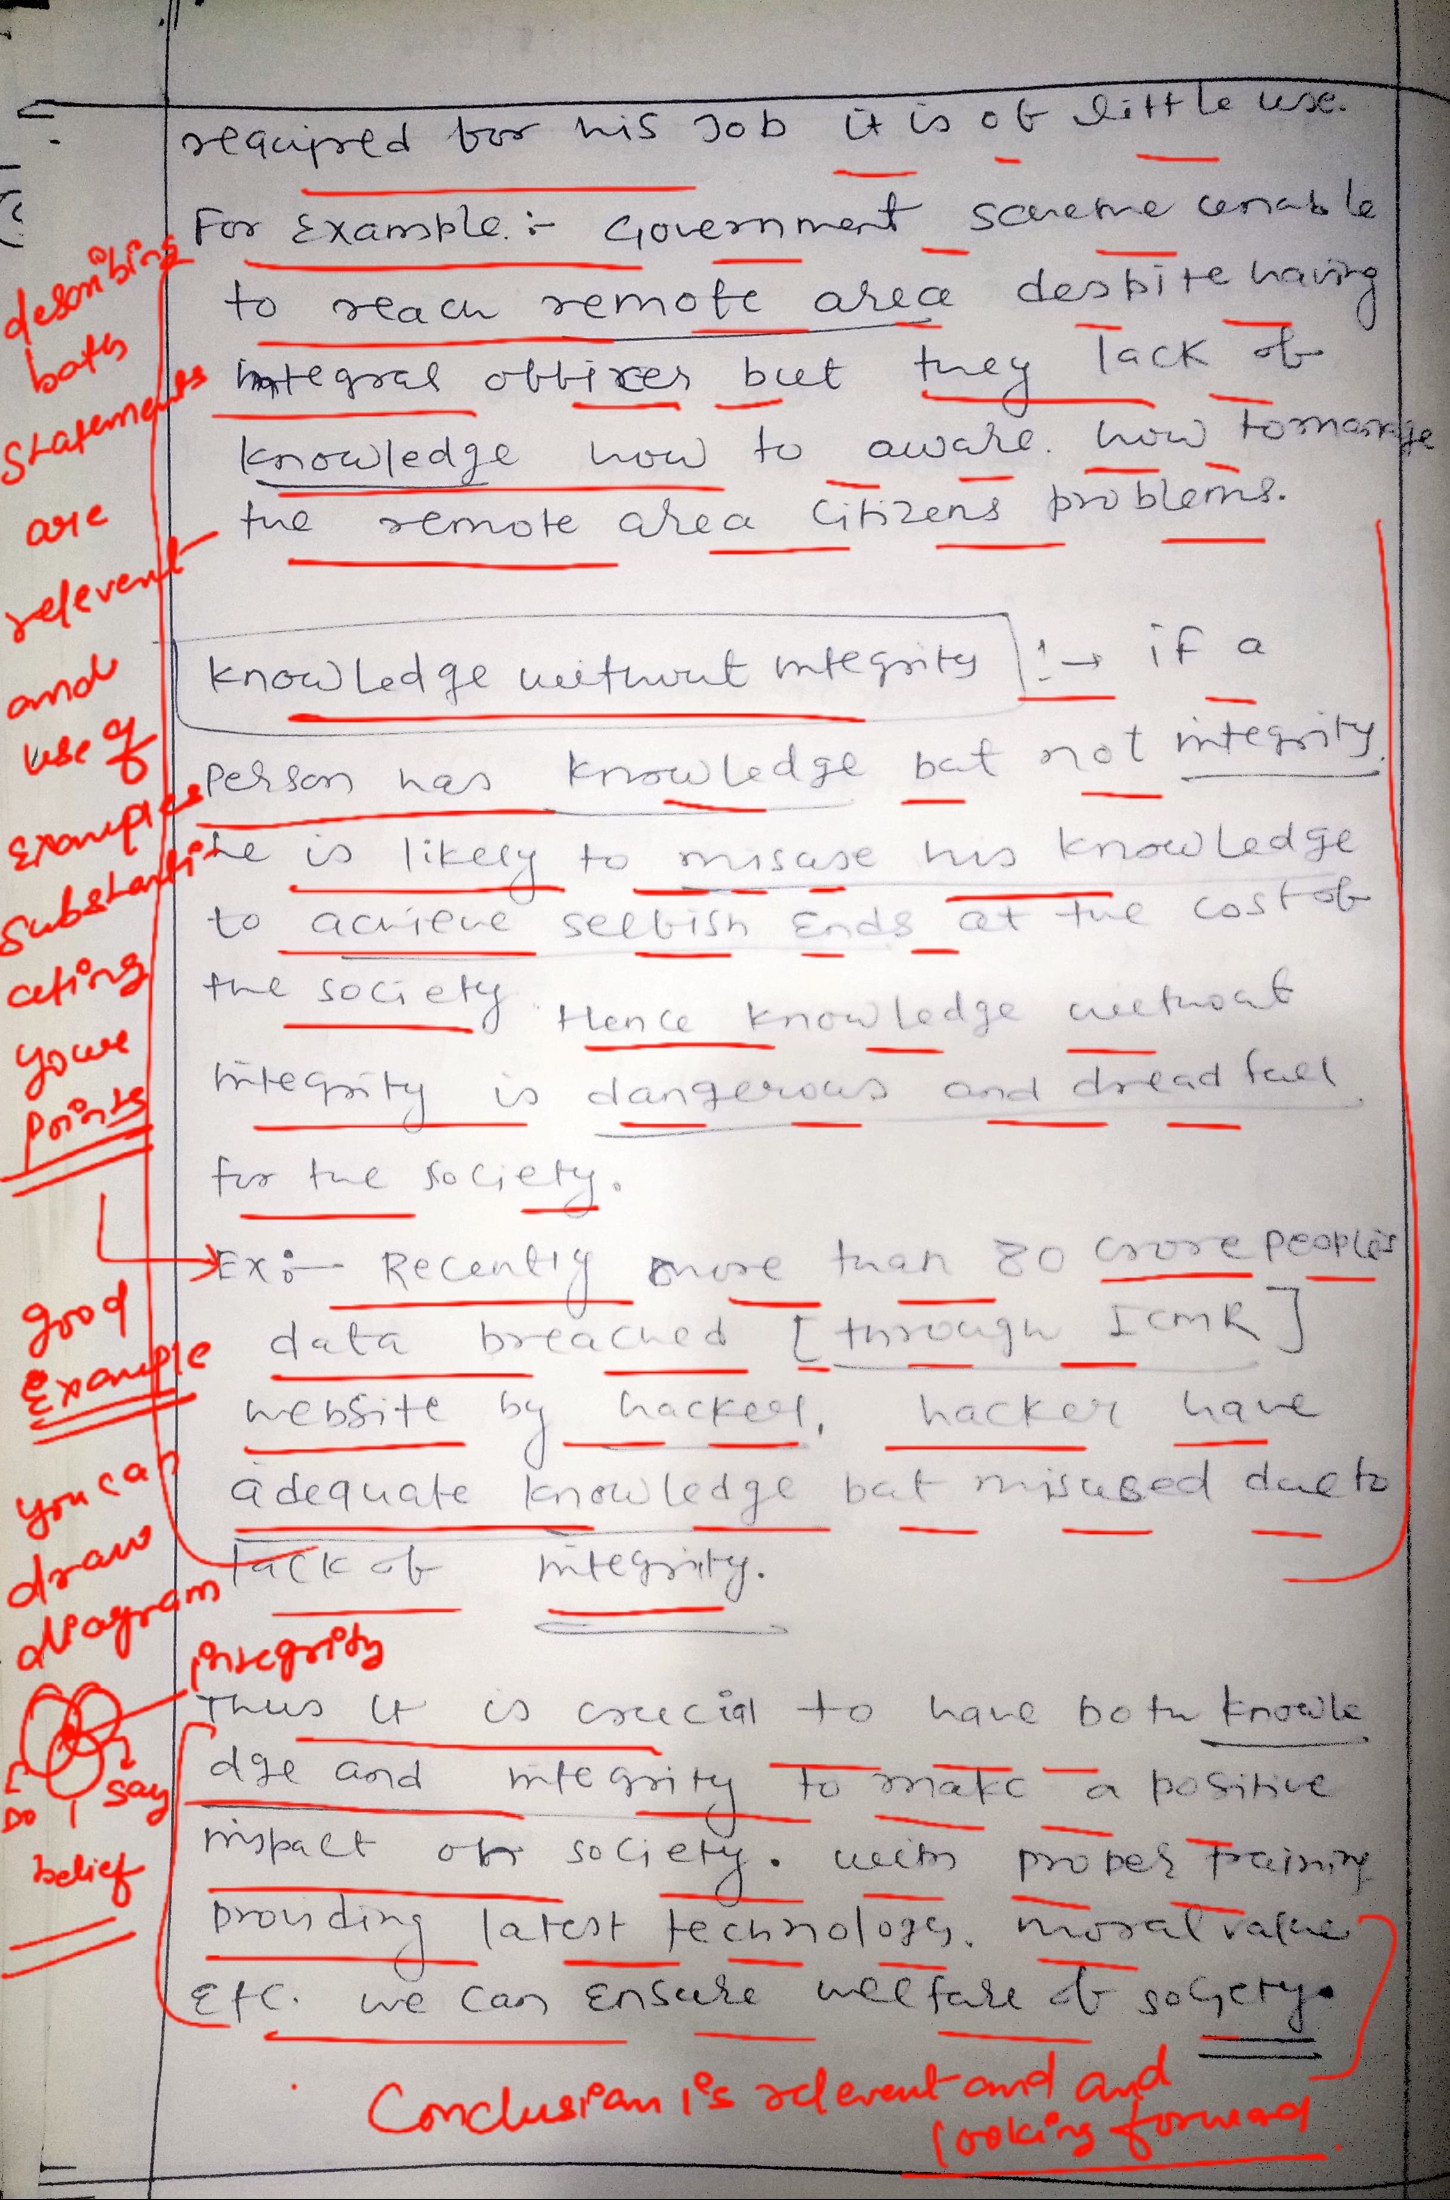 required for his Job it is of little use.
For Example :- Government scheme unable
to reach remote area despite having
integral officer but they lack of
knowledge how to aware. how to manage
the remote area Citizens problems.
Knowledge without integrity :→ if a
person has knowledge but not integrity.
he is likely to misuse his knowledge
to achieve selfish Ends at the cost of
the society. Hence knowledge without
integrity is dangerous and dreadfull
for the society.
Ex:- Recently more than 80 crore people's
data breached [through ICMR]
website by hacker, hacker have
adequate knowledge but misused due to
lack of integrity.
Thus it is crucial to have both knowle
dge and integrity to make a positive
impact on society. with proper training
providing latest technology. moral value
Etc. we can Ensure welfare of society.
describing
both
statements
are
relevent
and
use of
Examples
substanti
ating
your
points
good
Example
you can
draw
diagram
integrity
Do
say
belief
Conclusion is relevent and and
looking forward